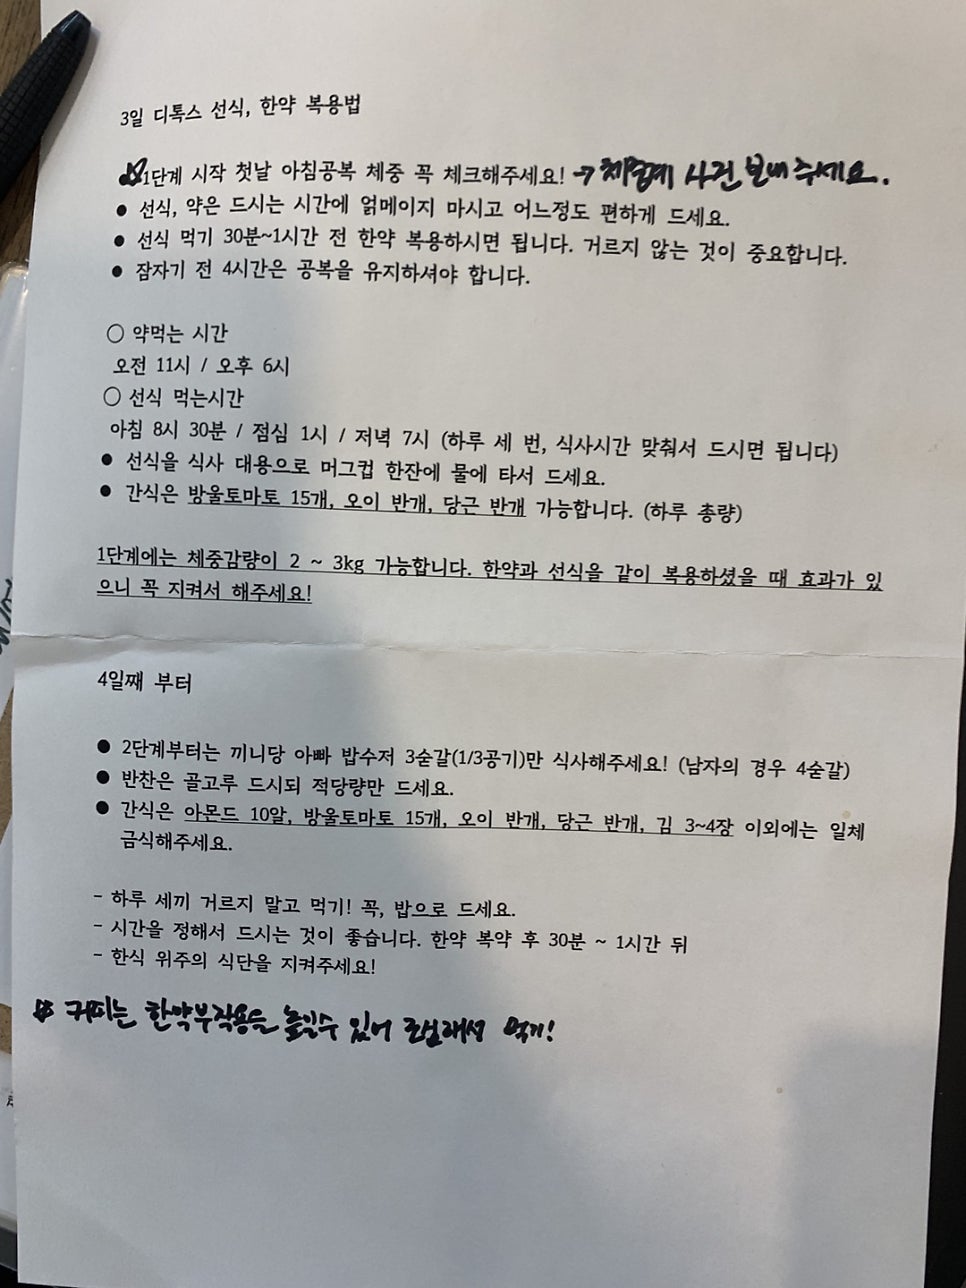 3일 디톡스 선식, 한약 복용법
1단계 시작 첫날 아침공복 체중 꼭 체크해주세요! → 체중계 사진 보내주세요.
● 선식, 약은 드시는 시간에 얽메이지 마시고 어느정도 편하게 드세요.
● 선식 먹기 30분~1시간 전 한약 복용하시면 됩니다. 거르지 않는 것이 중요합니다.
● 잠자기 전 4시간은 공복을 유지하셔야 합니다.
○ 약먹는 시간
오전 11시 / 오후 6시
○ 선식 먹는시간
아침 8시 30분 / 점심 1시 / 저녁 7시 (하루 세 번, 식사시간 맞춰서 드시면 됩니다)
● 선식을 식사 대용으로 머그컵 한잔에 물에 타서 드세요.
● 간식은 방울토마토 15개, 오이 반개, 당근 반개 가능합니다. (하루 총량)
1단계에는 체중감량이 2 ~ 3kg 가능합니다. 한약과 선식을 같이 복용하셨을 때 효과가 있
으니 꼭 지켜서 해주세요!
4일째 부터
● 2단계부터는 끼니당 아빠 밥수저 3숟갈(1/3공기)만 식사해주세요! (남자의 경우 4숟갈)
● 반찬은 골고루 드시되 적당량만 드세요.
● 간식은 아몬드 10알, 방울토마토 15개, 오이 반개, 당근 반개, 김 3~4장 이외에는 일체
금식해주세요.
- 하루 세끼 거르지 말고 먹기! 꼭, 밥으로 드세요.
- 시간을 정해서 드시는 것이 좋습니다. 한약 복약 후 30분 ~ 1시간 뒤
- 한식 위주의 식단을 지켜주세요!
커피는 한약부작용을 높일수 있어 조심해서 먹기!